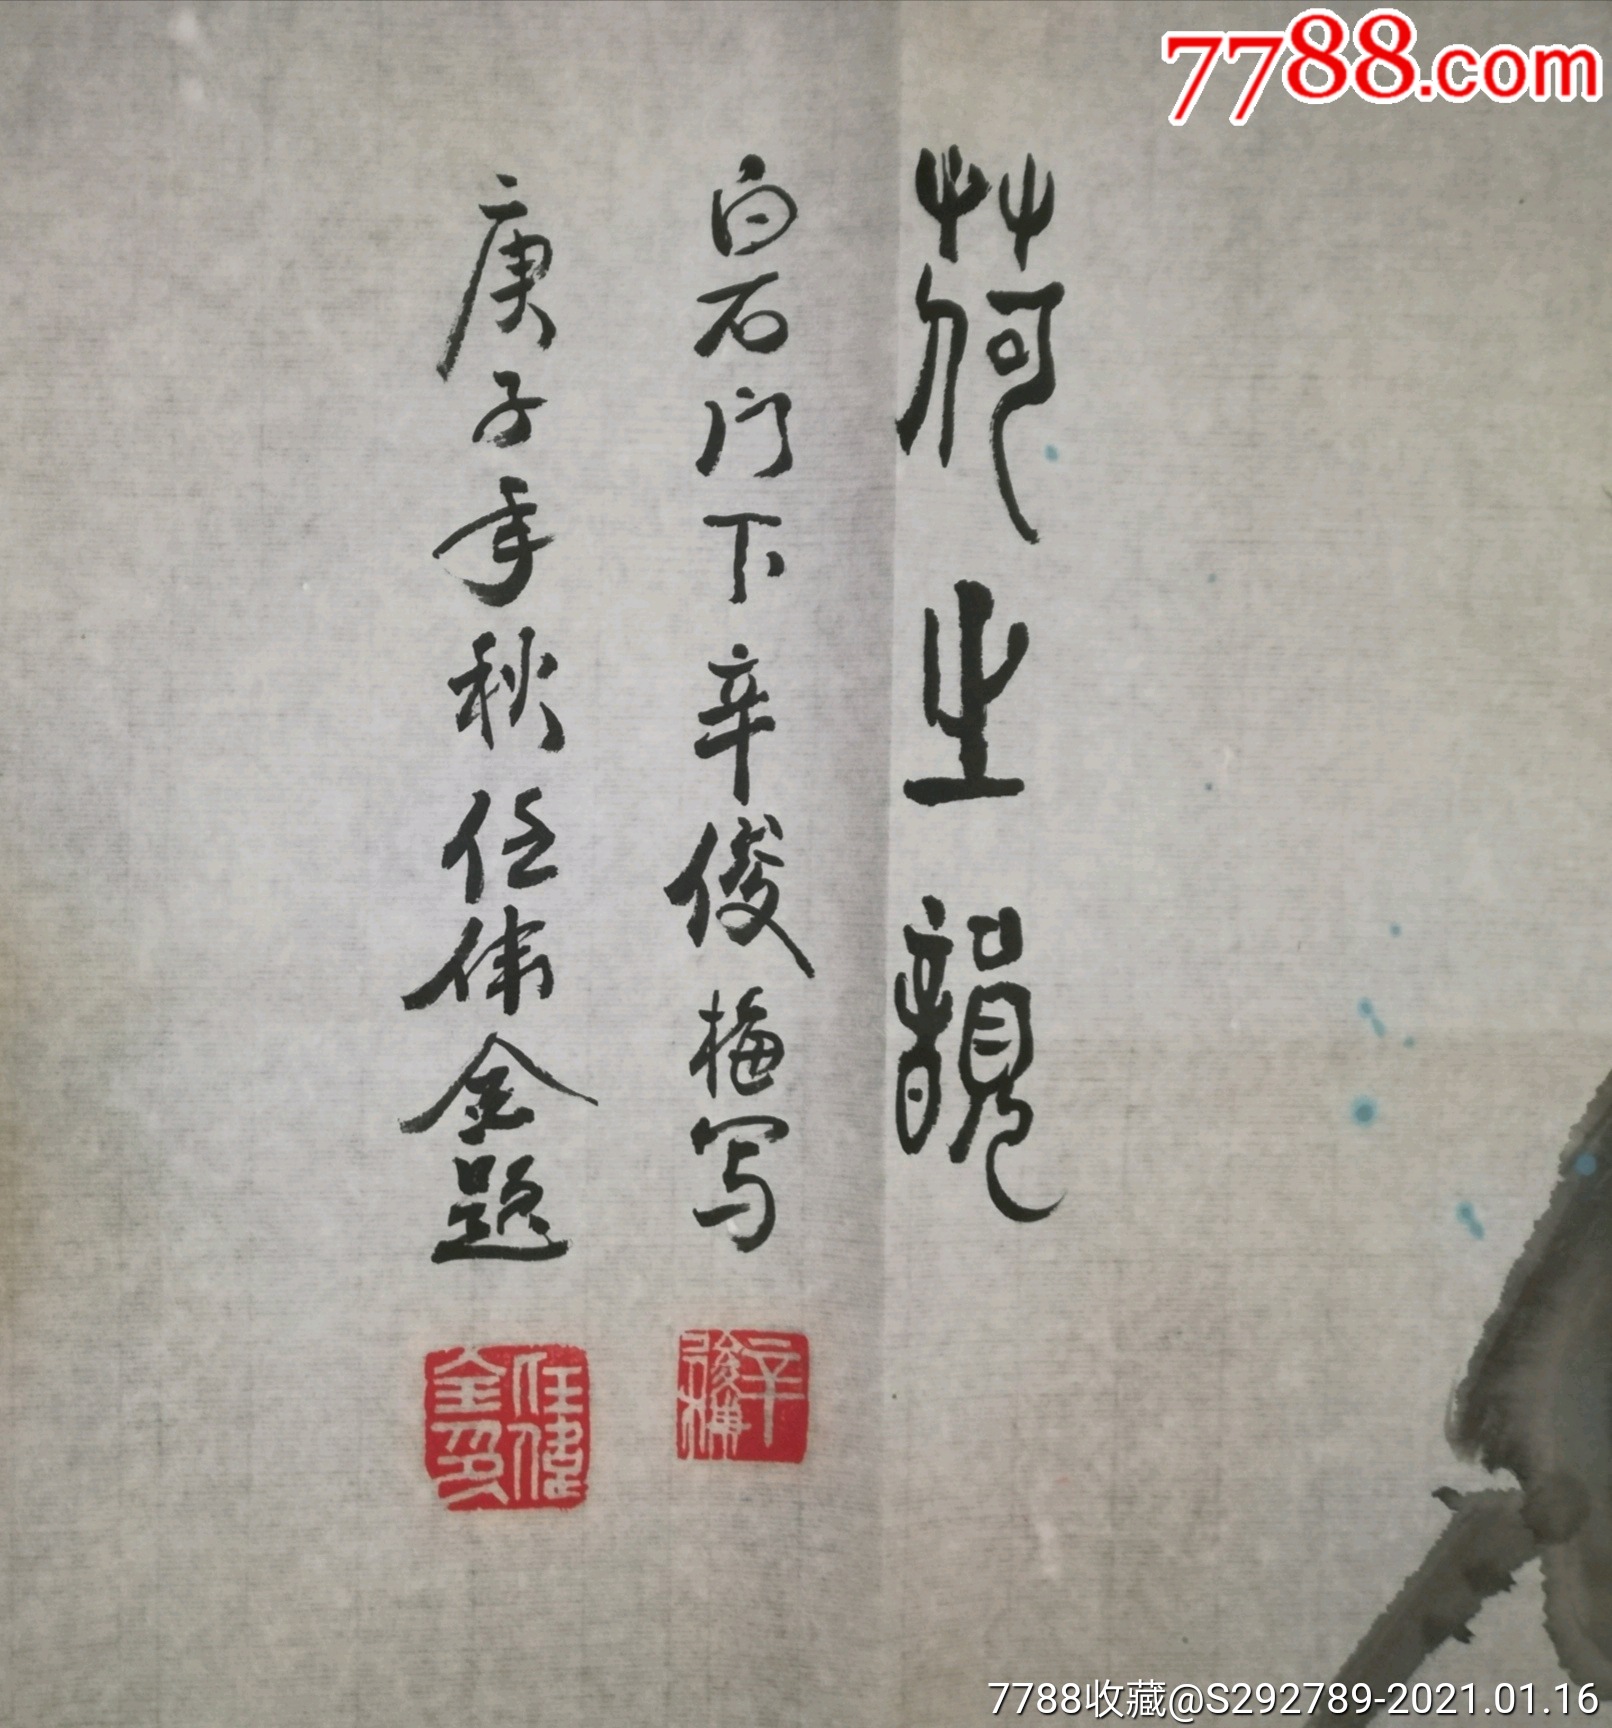 7788.com
荷生韻
白石门下辛俊梅写
庚子年秋任伟金题
辛俊梅
任偉金
7788收藏@S292789-2021.01.16